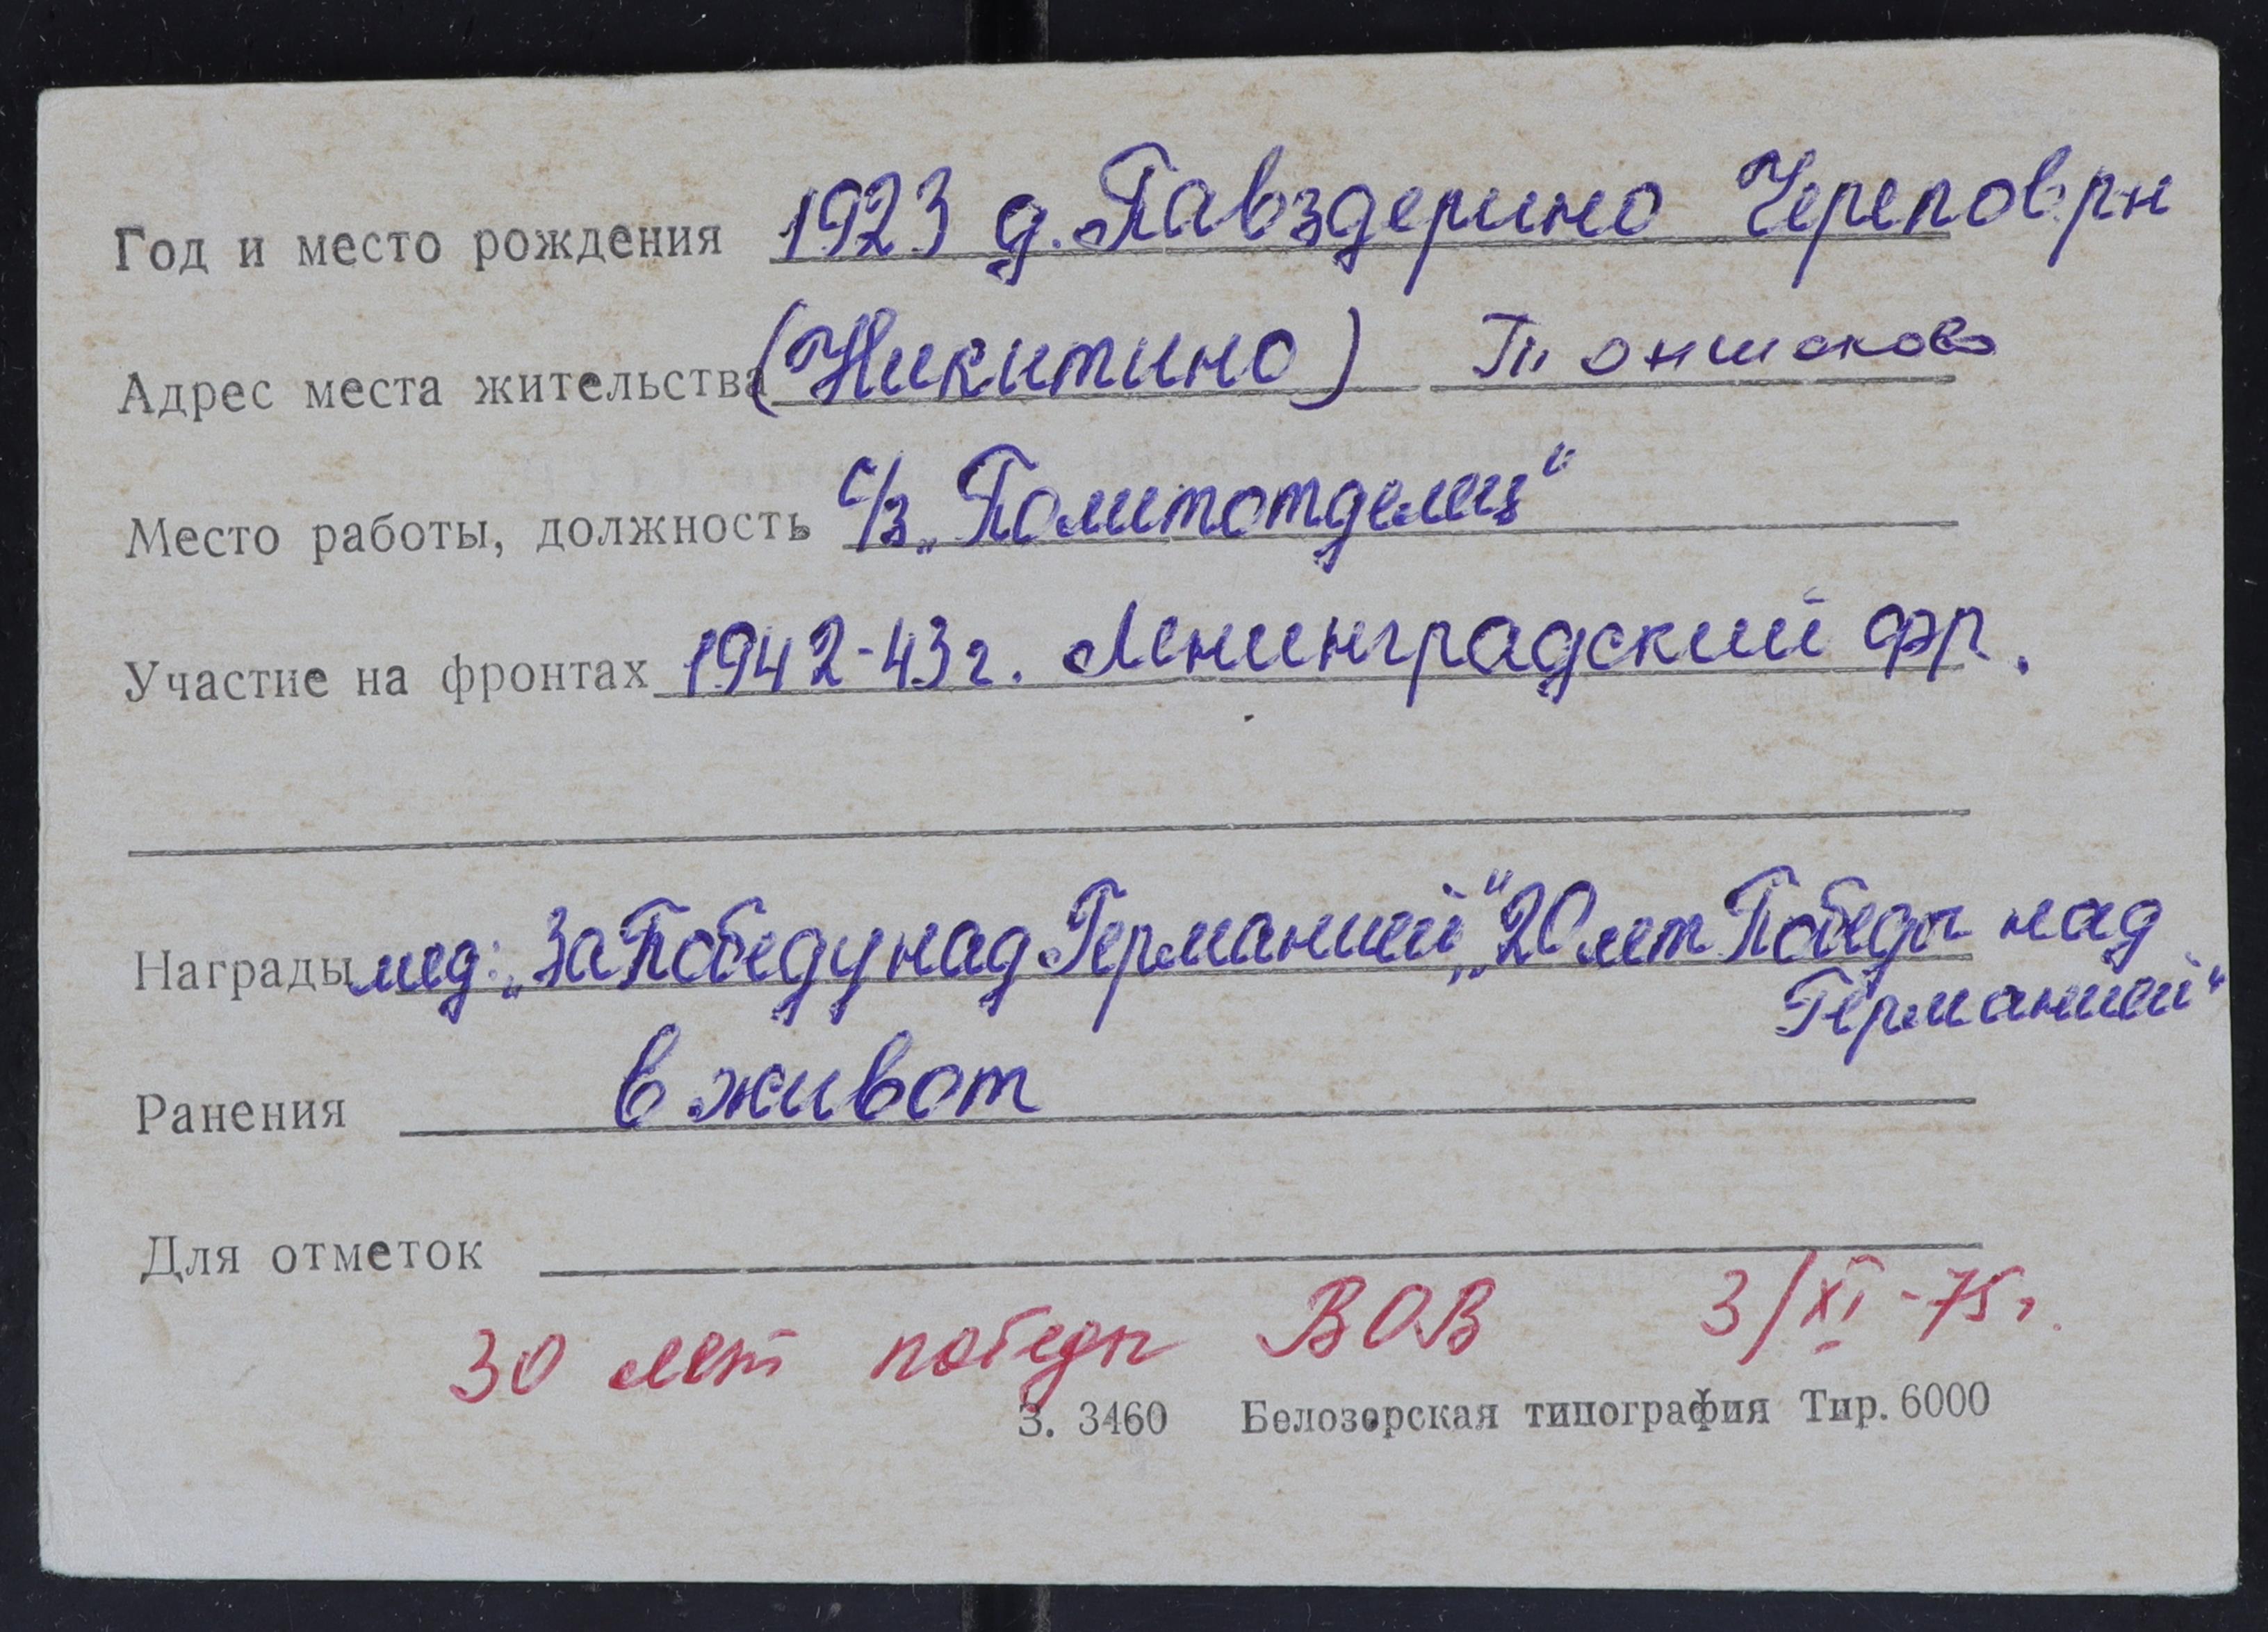 Год и место рождения 1923 д. Павздерино Черепов. рн
Адрес места жительства (Никитино) Тоншалово
Место работы, должность с/з „Политотделец"
Участие на фронтах 1942-43г. Ленинградский фр.
Награды мед: „За Победу над Германией", „20 лет Победы над
Германией"
Ранения в живот
Для отметок
30 лет победы ВОВ 3/XI-75г.
З. 3460 Белозерская типография Тир. 6000